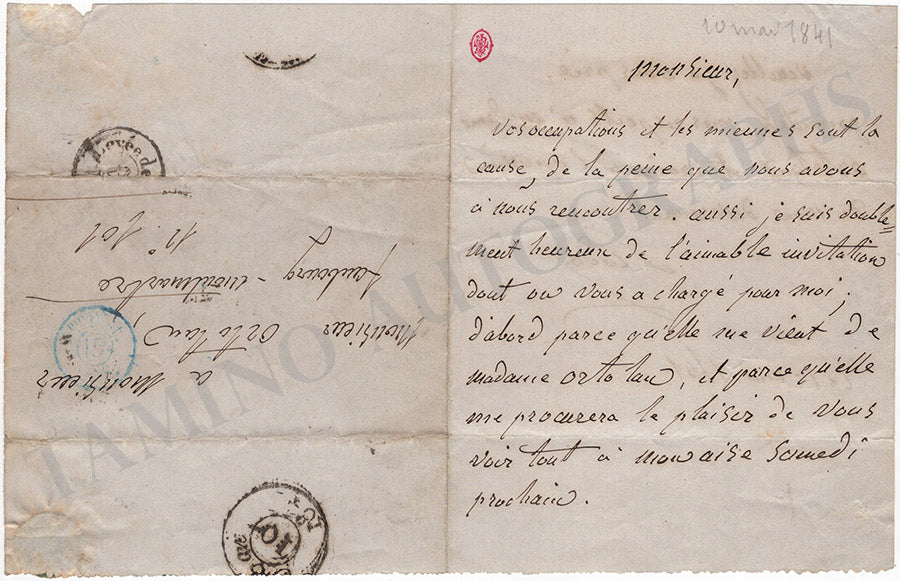 10 mai 1841
Monsieur,
Vos occupations et les miennes sont la
cause, de la peine que nous avons
à nous rencontrer. aussi je suis double=
ment heureux de l'aimable invitation
dont on vous a chargé pour moi;
d'abord parce qu'elle me vient de
madame ortolan, et parce qu'elle
me procurera le plaisir de vous
voir tout à mon aise samedi
prochain.
a Monsieur
Monsieur Ortolan,
faubourg-montmartre
n° 101
Levée de
10
TAMINO AUTOGRAPHS